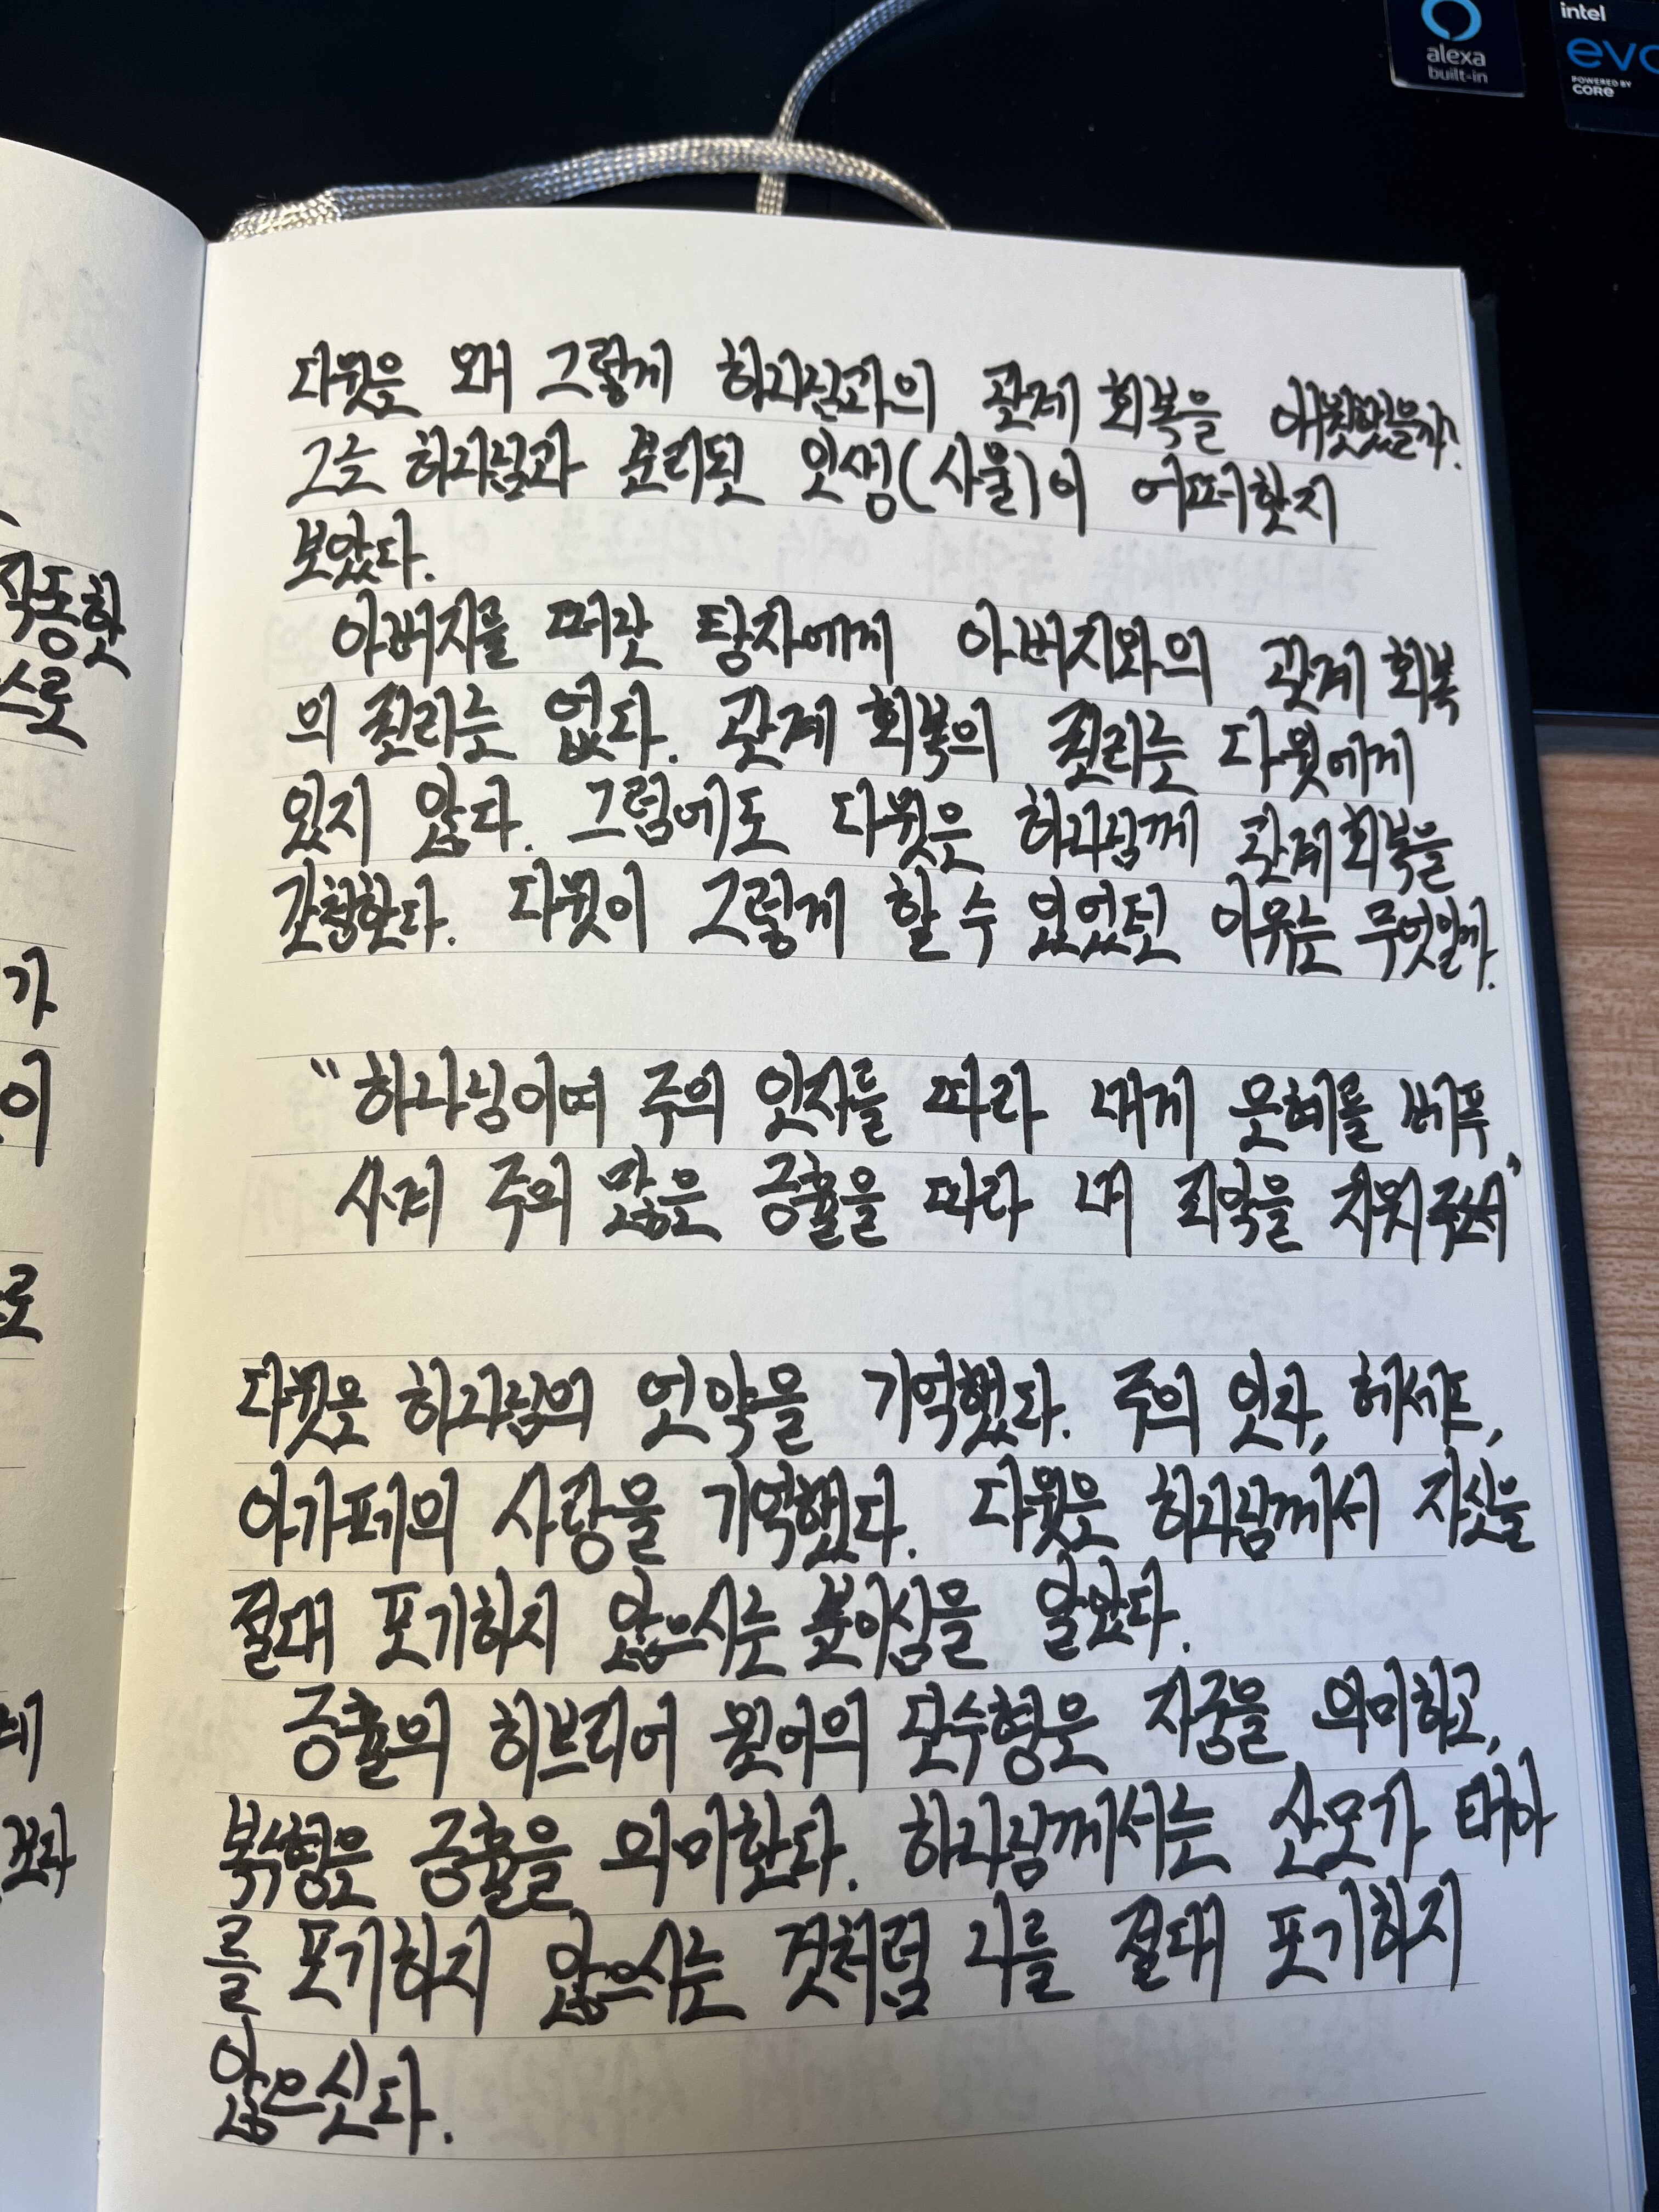 alexa
built-in
intel
evo
POWERED BY
CORE
다윗은 왜 그렇게 하나님과의 관계 회복을
그는 하나님과 분리된 인생(사울)이 어떠한지
보았다.
아버지를 떠난 탕자에게 아버지와의 관계 회복
의 권리는 없다. 관계 회복의 권리는 다윗에게
있지 않다. 그럼에도 다윗은 하나님께 관계 회복을
간청한다. 다윗이 그렇게 할 수 있었던 이유는 무엇일까.
“하나님이여 주의 인자를 따라 내게 은혜를 베푸
시며 주의 많은 긍휼을 따라 내 죄악을 지워 주소서”
다윗은 하나님의 언약을 기억했다. 주의 인자, 헤세드,
아가페의 사랑을 기억했다. 다윗은 하나님께서 자신을
절대 포기하지 않으시는 분이심을 알았다.
긍휼의 히브리어 원어의 단수형은 자궁을 의미하고,
복수형은 긍휼을 의미한다. 하나님께서는 산모가 태아
를 포기하지 않으시는 것처럼 나를 절대 포기하지
않으신다.